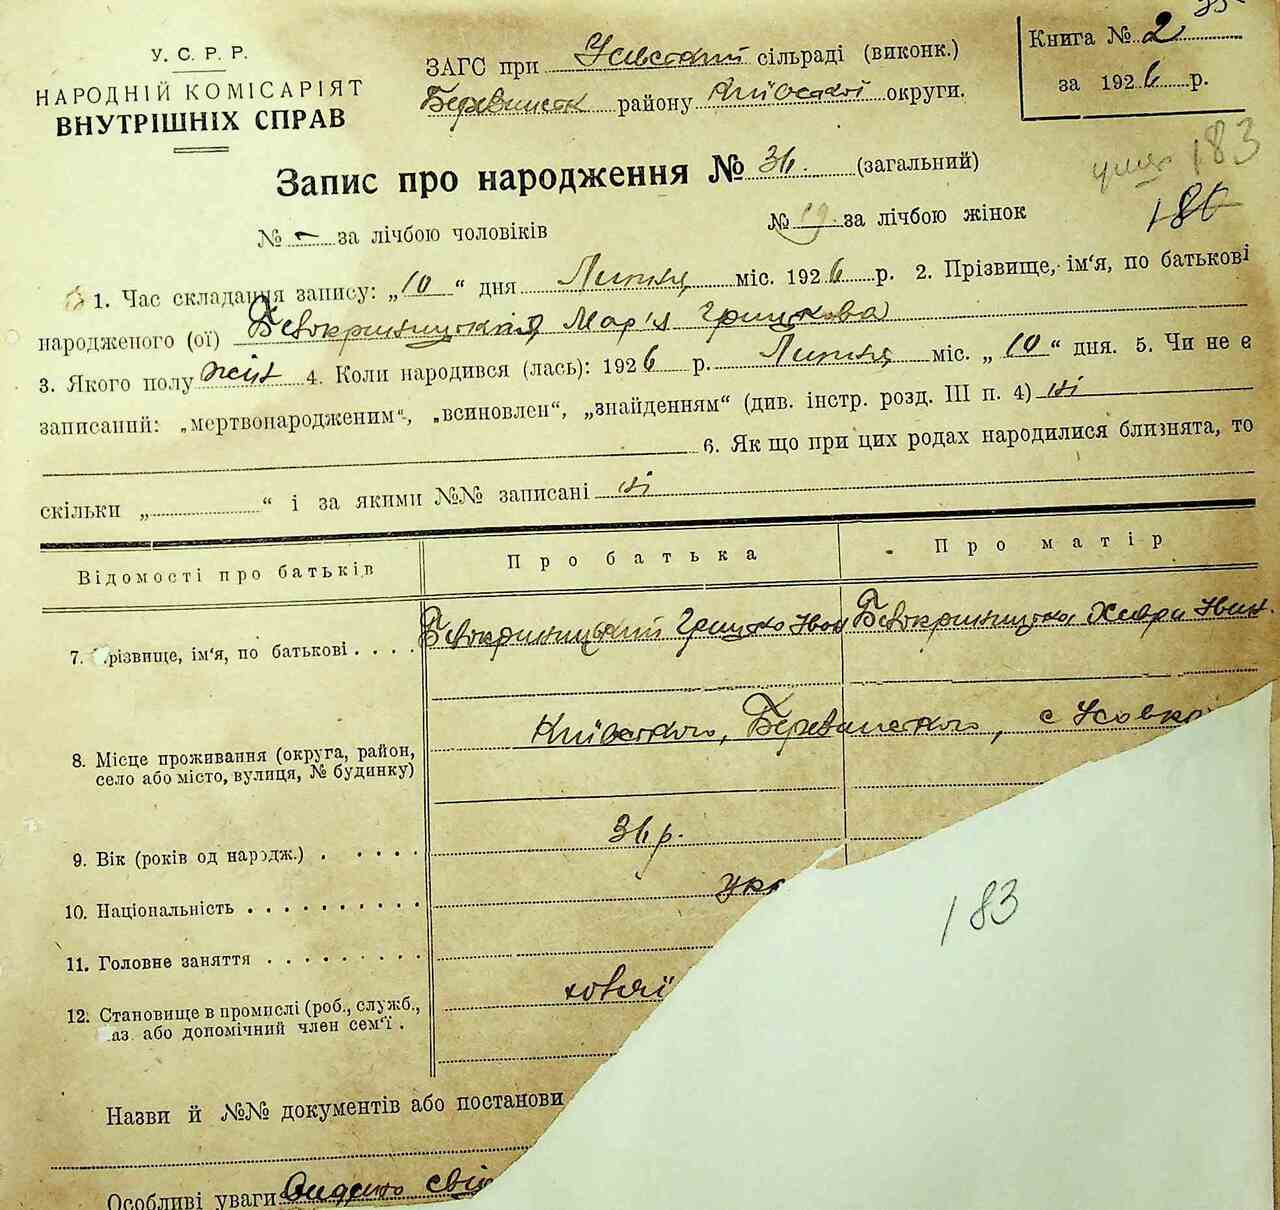 У. С. Р. Р.
НАРОДНІЙ КОМІСАРІЯТ
ВНУТРІШНІХ СПРАВ
ЗАГС при сільраді (виконк.)
району Київської округи.
Книга № 2
за 1926 р.
Запис про народження № 36. (загальний)
183
№ - за лічбою чоловіків
№ 19 за лічбою жінок
186
1. Час складання запису: „10“ дня Липня міс. 1926 р. 2. Прізвище, ім'я, по батькові
народженого (ої) Білокриницкая Мар'я Грицкова
3. Якого полу жін 4. Коли народився (лась): 1926 р. Липня міс. „10“ дня. 5. Чи не є
записаний: „мертвонародженим“, „всиновлен“, „знайденням“ (див. інстр. розд. III п. 4) ні
6. Як що при цих родах народилися близнята, то
скільки „ “ і за якими №№ записані ні
Відомості про батьків
Про батька
Про матір
7. різвище, ім'я, по батькові
Білокриницький Грицко Іван
Білокриницка Хивря Іван.
8. Місце проживання (округа, район,
село або місто, вулиця, № будинку)
Київского, с
9. Вік (років од народж.)
36 р.
10. Національність
укр
11. Головне заняття
12. Становище в промислі (роб., служб.,
аз. або допомічний член сем'ї.
183
Назви й №№ документів або постанови
Особливі уваги Видано сві